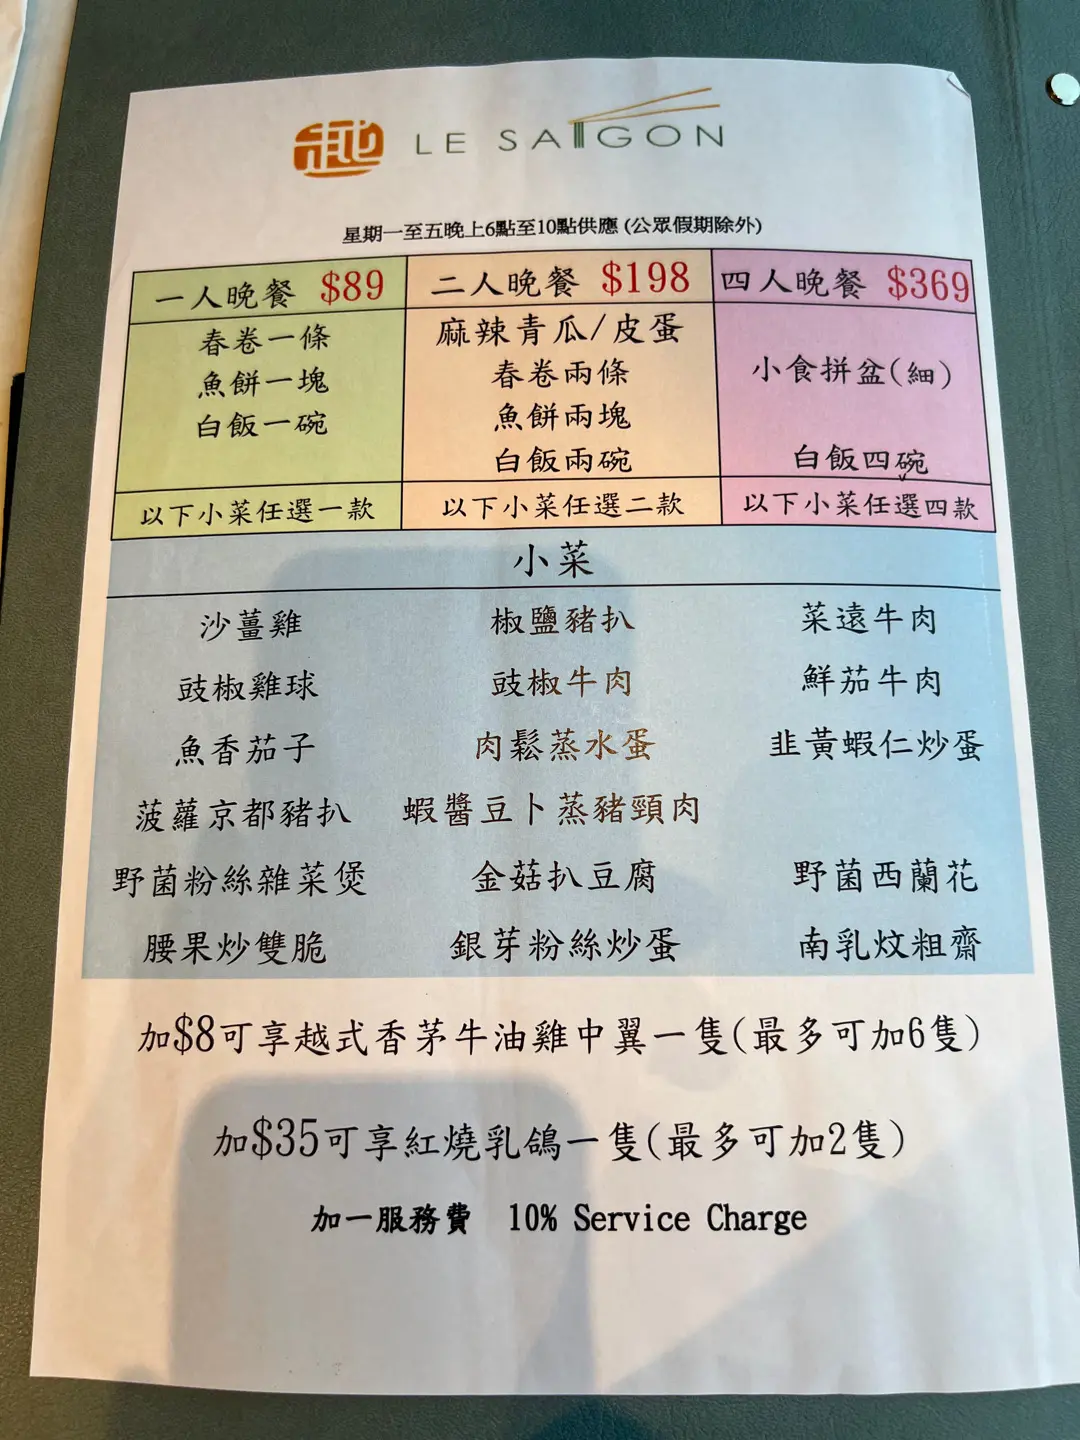 越 LE SAIGON
星期一至五晚上6點至10點供應(公眾假期除外)
一人晚餐 $89
春卷一條
魚餅一塊
白飯一碗
以下小菜任選一款
二人晚餐 $198
麻辣青瓜/皮蛋
春卷兩條
魚餅兩塊
白飯兩碗
以下小菜任選二款
四人晚餐 $369
小食拼盆(細)
白飯四碗
以下小菜任選四款
小菜
沙薑雞 椒鹽豬扒 菜遠牛肉
豉椒雞球 豉椒牛肉 鮮茄牛肉
魚香茄子 肉鬆蒸水蛋 韭黃蝦仁炒蛋
菠蘿京都豬扒 蝦醬豆卜蒸豬頸肉
野菌粉絲雜菜煲 金菇扒豆腐 野菌西蘭花
腰果炒雙脆 銀芽粉絲炒蛋 南乳炆粗齋
加$8可享越式香茅牛油雞中翼一隻(最多可加6隻)
加$35可享紅燒乳鴿一隻(最多可加2隻)
加一服務費 10% Service Charge